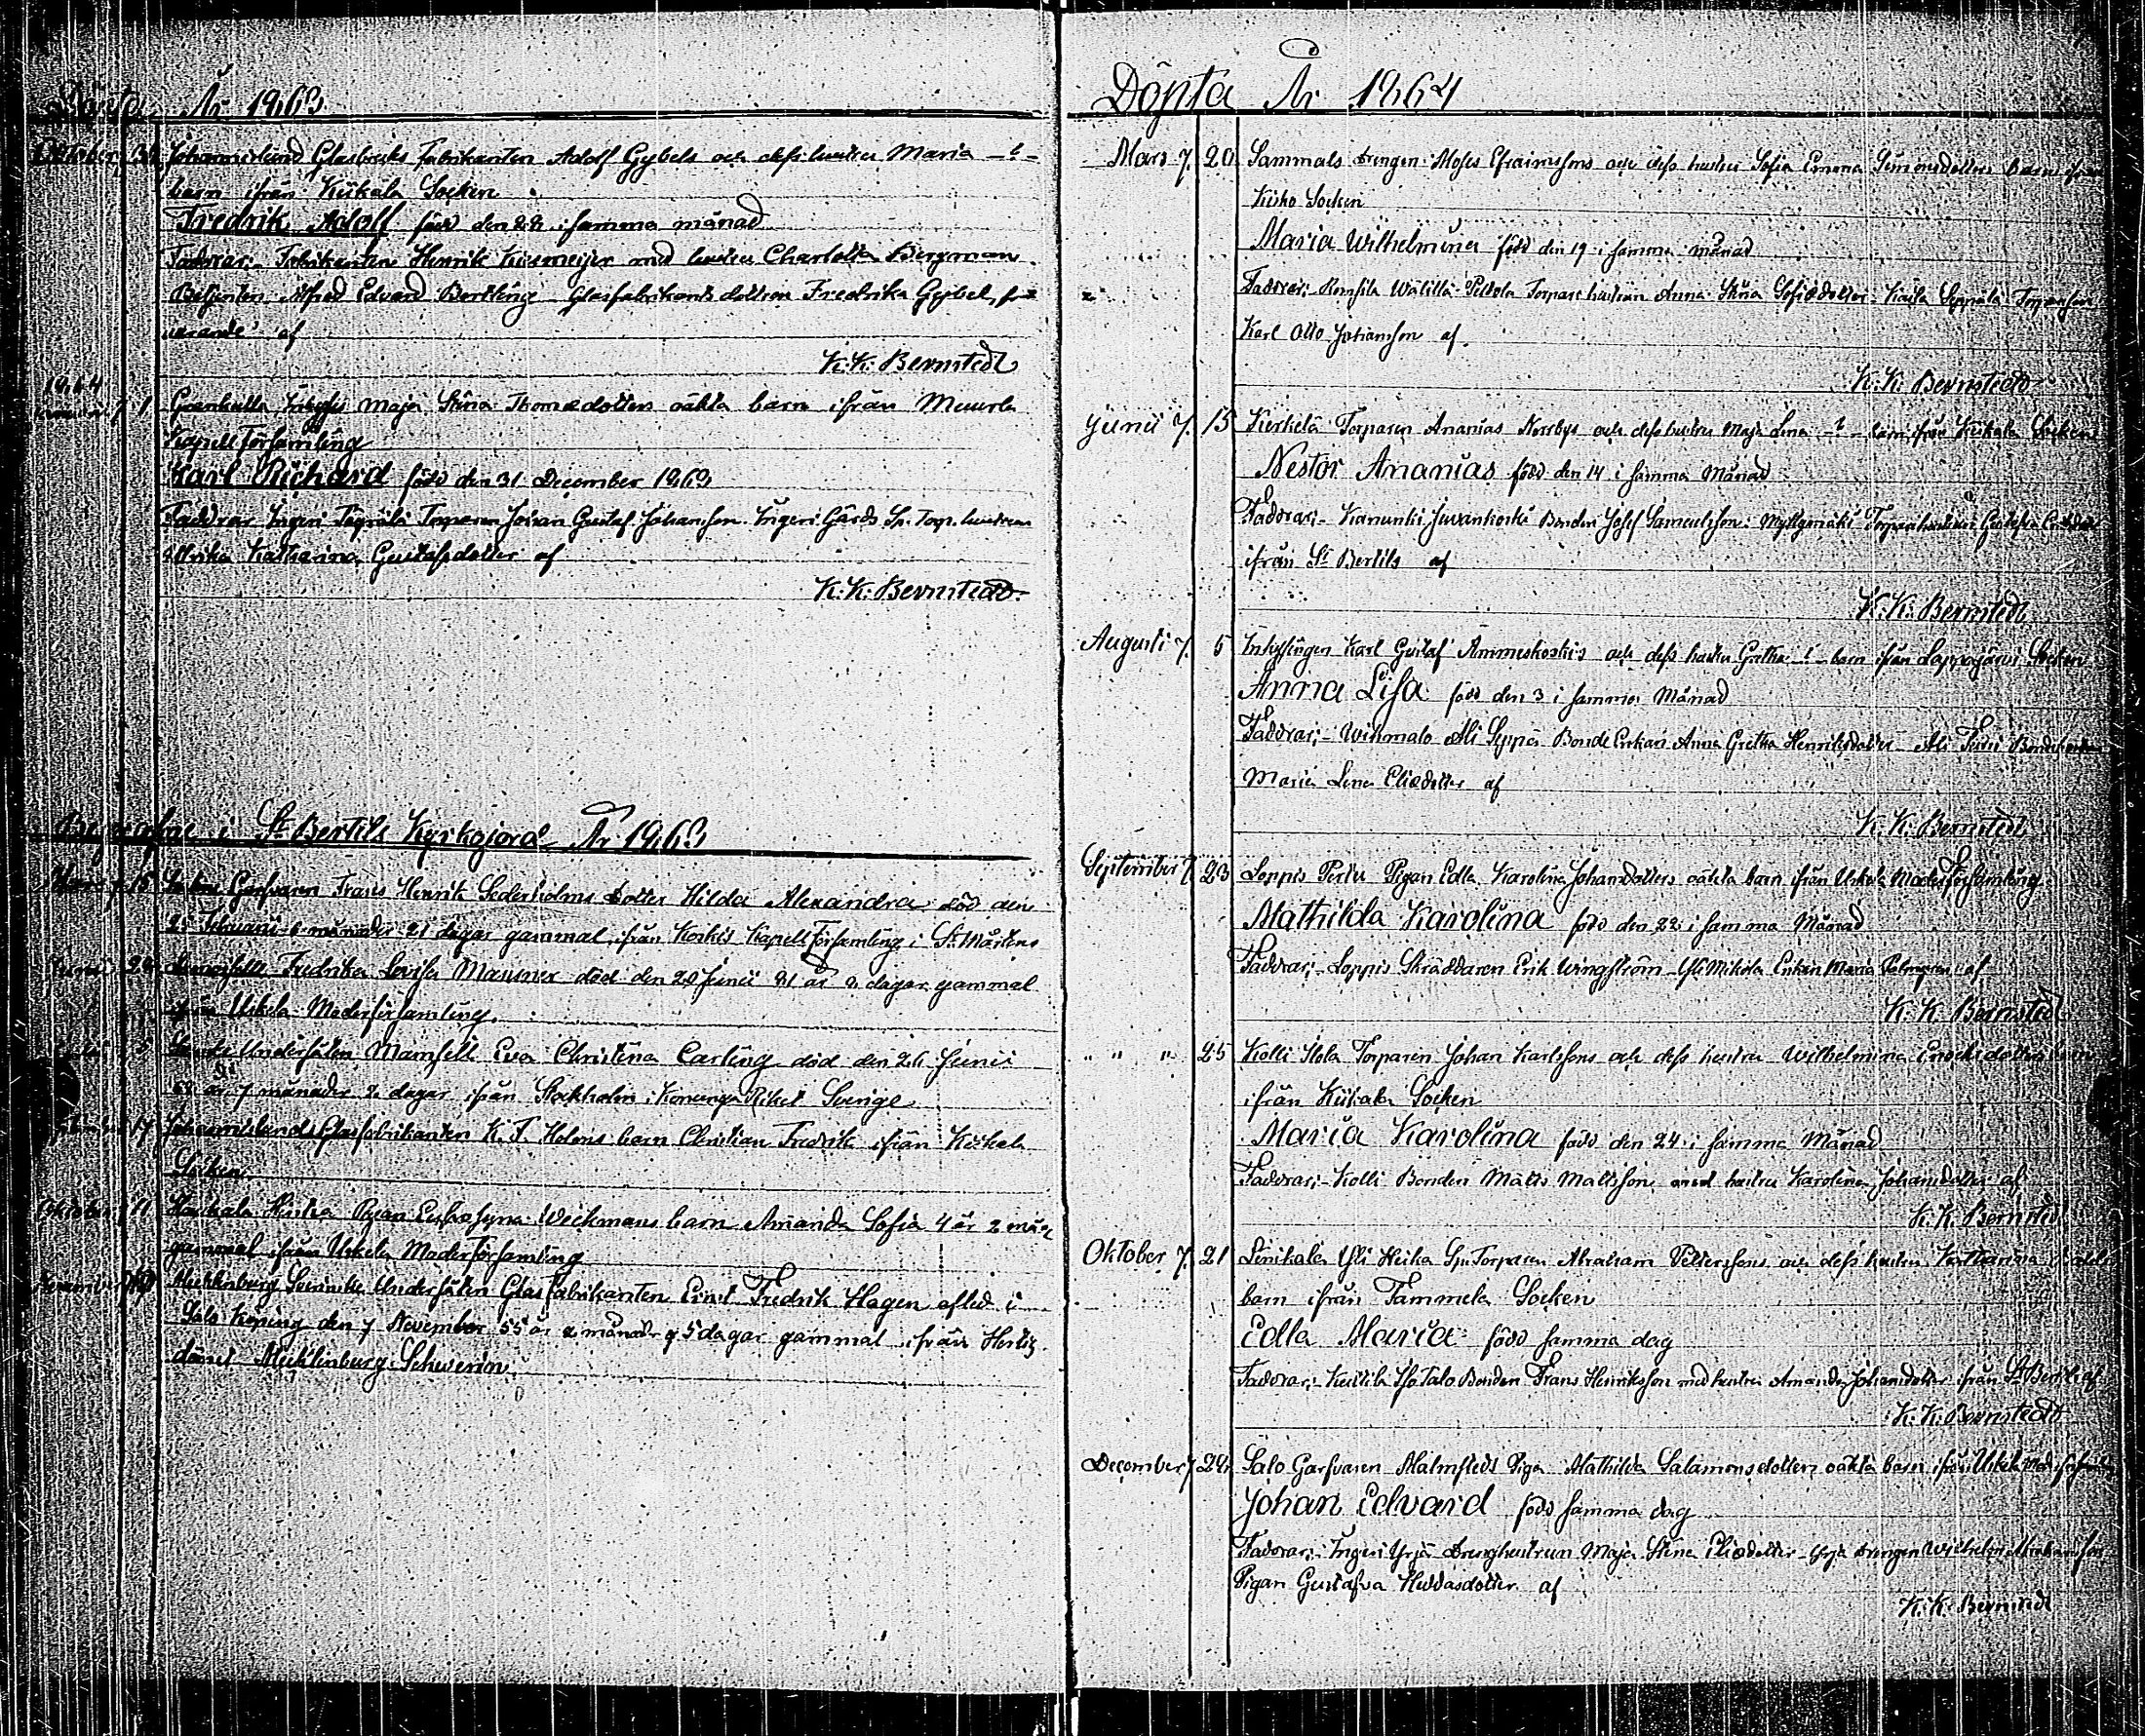 Döpta År 1863
Oktober 7. 31 Johannislund Glasbruks Fabrikanten Adolf Gybels och dess hustru Maria -?-
barn ifrån Kiikala Socken
Fredrik Adolf född den 28 i samma månad
Faddrar; Fabrikanten Henrik med hustru Charlotta Bergman
Betjenten Alfred Edvard Glasfabrikants dottren Fredrika Gybel,
af
K. K. Bernstedt
1864
Januari 7. 1 Inhyses Maja Stina Thomædotters oäkta barn ifrån Muurla
Kapell Församling
Karl Richard född den 31 December 1863
Faddrar Ingeri Torparen Johan Gustaf Johansson. Ingeri Gårds Sp. Torp. hustrun
Ulrika Katharina Gustafsdotter af
K. K. Bernstedt
Begrafne i St Bertils Kyrkogård År 1863
Mars 7. 15 Garfvaren Frans Henrik Sederholms Dotter Hilda Alexandra död den
25 Februari 6 månader 21 dagar gammal, ifrån Koskis Kapell Församling i St Mårtens
Junii 28 Fredrika Lovisa Manner död den 20 Junii 81 år 2 dagar gammal
ifrån Uskela Moderförsamling.
5 Svenske Undersåten Mamsell Eva Christina Carling död den 26 Junii
år 7 månader 2 dagar ifrån Stockholm i Konunga Riket Sverige
17 Johannislunds Glasfabrikanten K. F. Holms barn Christian Fredrik ifrån Kiikala
Socken
Oktober 11 Pigan Weckmans barn Amanda Sofia 4 år 2 mån
gammal ifrån Uskela Moderförsamling
November Mecklenburg Schwerinske Undersåten Glasfabrikanten Ernst Fredrik Hagen afled i
Salo Köping den 7 November 55 år 2 månader 5 dagar gammal ifrån Hertig
dömet Mecklenburg-Schwerin.
Döpta År 1864
Mars 7. 20 Sammalo Drengen Moses Efraimssons och dess hustru Sofia Emma Simonsdotters Barn ifrån
Kisko Socken
Maria Wilhelmina född den 19 i samma månad
Faddrar; Wätillä Torpare hustrun Anna Stina Seppälä Torparson
Karl Otto Johansson af
K. K. Bernstedt
Junii 7. 15 Kerkelä Torparen Ananias Norrbys och dess hustru Maja Lena -?- barn ifrån Kiikala Socken
Nestor Ananias född den 14 i samma Månad
Faddrar; Kanunki Juvankoski Bonden Josef Samuelsson. Torparehustrun
ifrån St Bertils af
K. K. Bernstedt
Augusti 7. 5 Inhysingen Karl Gustaf Ammeskoskis och dess hustru Gretha -?- barn ifrån Lappajärvi Socken
Anna Lisa född den 3 i samma Månad
Faddrar; Wihmalo Ali Seppä Bonde Enkan Anna Gretha Henriksdotter - Ali Bonde
Maria Lena Eliædotter af
K. K. Bernstedt
September 7. 23 Loppis Perttu Pigan Edla Karolina Johansdotters oäkta barn ifrån Uskela Moderförsamling
Mathilda Karolina född den 22 i samma Månad
Faddrar; Loppis Skräddaren Erik Wingström - Yli Mikola Enkan Maria Palmgren af
K. K. Bernstedt
" " " 25 Kolli Torparen Johan Karlssons och dess hustru Wilhelmina Enochsdotters barn
ifrån Kiikala Socken
Maria Karolina född den 24 i samma Månad
Faddrar; Kolli Bonden Matts Mattsson med hustru Karolina Johansdotter af
K. K. Bernstedt
Oktober 7. 21 Yli Heika Sp. Torparen Abraham Petterssons och dess hustru Katharina
barn ifrån Tammela Socken
Edla Maria född samma dag
Faddrar; Iso Talo Bonden Frans Henriksson med hustru Amanda Johansdotter ifrån St Bertils af
K. K. Bernstedt
December 7. 28 Salo Garfvaren Malmstedts Piga Mathilda Salamonsdotters oäkta barn ifrån Uskela
Johan Edvard född samma dag
Faddrar; Ingeri Yrjä Drenghustrun Maja Stina Eliædotter - Yrjä Drengen Wilhelm Abrahamsson
Pigan Gustafva af
K. K. Bernstedt